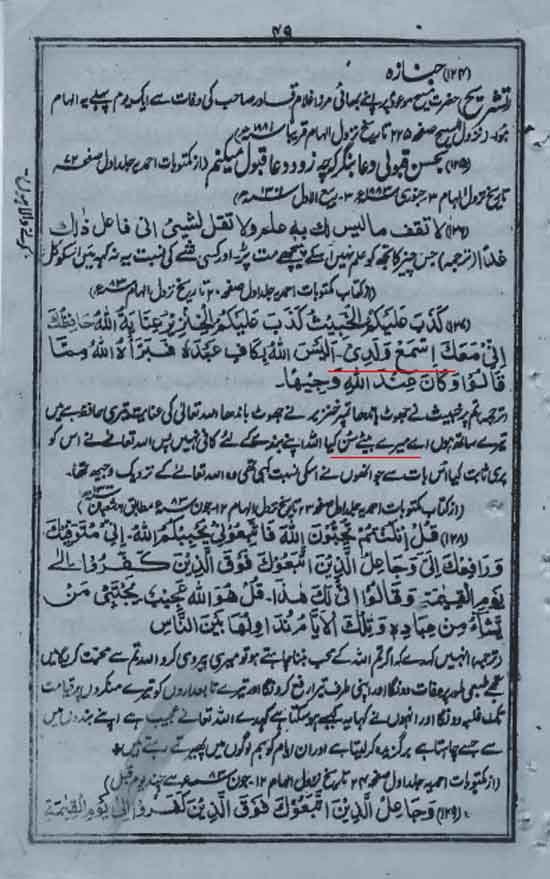 ۴۹
(۱۲۴) جنازہ
(تشریح) حضرت مسیح موعود پر اپنے بھائی مرزا غلام قادر صاحب کی وفات سے ایک یوم پہلے یہ الہام
ہوا۔ (نزول المسیح صفحہ ۲۲۵ تاریخ نزول الہام قریباً ۱۸۸۱ء)
(۱۲۵) بحسن قبولی دعا بنگر کہ چہ زود دعا قبول میکنم (از مکتوبات احمدیہ جلد اول صفحہ
تاریخ نزول الہام ۳ جنوری ۱۸۸۳ء ۳۔ ربیع الاول
(۱۲۶) لا تقف ما لیس لك به علم ولا تقل لشیئ انی فاعل ذلك
غدًا (ترجمہ) جس چیز کا تجھ کو علم نہیں اسکے پیچھے مت پڑ۔ اور کسی شے کی نسبت یہ نہ کہہ میں اسکو کل
(از کتاب مکتوبات احمدیہ جلد اول صفحہ ۲۰ تاریخ نزول الہام ۸۳ء)
(۱۲۷) کَذَبَ عَلَیْکُمُ الْخَبِیْثُ کَذَبَ عَلَیْکُمُ الْخِنْزِیْرُ عِنَایَةُ اللّٰهِ حَافِظُكَ
اِنِّیْ مَعَكَ اِسْمَعْ وَلَدِیْ۔ اَلَیْسَ اللّٰهُ بِکَافٍ عَبْدَہٗ فَبَرَّاَہُ اللّٰهُ مِمَّا
قَالُوْا وَکَانَ عِنْدَ اللّٰهِ وَجِیْهًا۔
(ترجمہ) تم پر خبیث نے جھوٹ باندھا تم پر خنزیر نے جھوٹ باندھا اللہ تعالیٰ کی عنایت تیری حافظ ہے میں
تیرے ساتھ ہوں اے میرے بیٹے سن کیا اللہ اپنے بندہ کے لئے کافی نہیں پس اللہ تعالےٰ نے اس کو
بری ثابت کیا اس بات سے جو انھوں نے اسکی نسبت کہی تھی وہ اللہ تعالےٰ کے نزدیک وجیہ تھا۔
(از کتاب مکتوبات احمدیہ جلد اول صفحہ ۲۳ تاریخ نزول الہام ۱۲۔ جون ۸۳ء مطابق ۶ شعبان
(۱۲۸) قُلْ اِنْ کُنْتُمْ تُحِبُّوْنَ اللّٰهَ فَاتَّبِعُوْنِیْ یُحْبِبْکُمُ اللّٰهُ۔ اِنِّیْ مُتَوَفِّیْكَ
وَرَافِعُكَ اِلَیَّ وَجَاعِلُ الَّذِیْنَ اتَّبَعُوْكَ فَوْقَ الَّذِیْنَ کَفَرُوْا اِلٰی
یَوْمِ الْقِیٰمَةِ وَقَالُوْا اَنّٰی لَكَ هٰذَا۔ قُلْ هُوَ اللّٰهُ عَجِیْبٌ یَجْتَبِیْ مَنْ
یَّشَآءُ مِنْ عِبَادِہٖ وَتِلْكَ الْاَیَّامُ نُدَاوِلُهَا بَیْنَ النَّاسِ
(ترجمہ) انہیں کہدے کہ اگر تم اللہ کے محب بننا چاہتے ہو تو میری پیروی کرو اللہ تم سے محبت کریگا میں
تجھے طبعی طور پر وفات دونگا اور اپنی طرف تیرا رفع کرونگا اور تیرے تابعداروں کو تیرے منکروں پر قیامت
تک غلبہ دونگا اور انہوں نے کہا یہ کیسے ہو سکتا ہے کہدے اللہ تعالےٰ عجیب ہے اپنے بندوں میں
سے جسے چاہتا ہے برگزیدہ کر لیتا ہے اور ان ایام کو ہم لوگوں میں پھیرتے رہتے ہیں ٭
(از مکتوبات احمدیہ جلد اول صفحہ ۲۴ تاریخ نزول الہام ۱۲۔ جون ۸۳ء سے چند یوم قبل)
(۱۲۹) وَجَاعِلُ الَّذِیْنَ اتَّبَعُوْكَ فَوْقَ الَّذِیْنَ کَفَرُوْا اِلٰی یَوْمِ الْقِیٰمَةِ